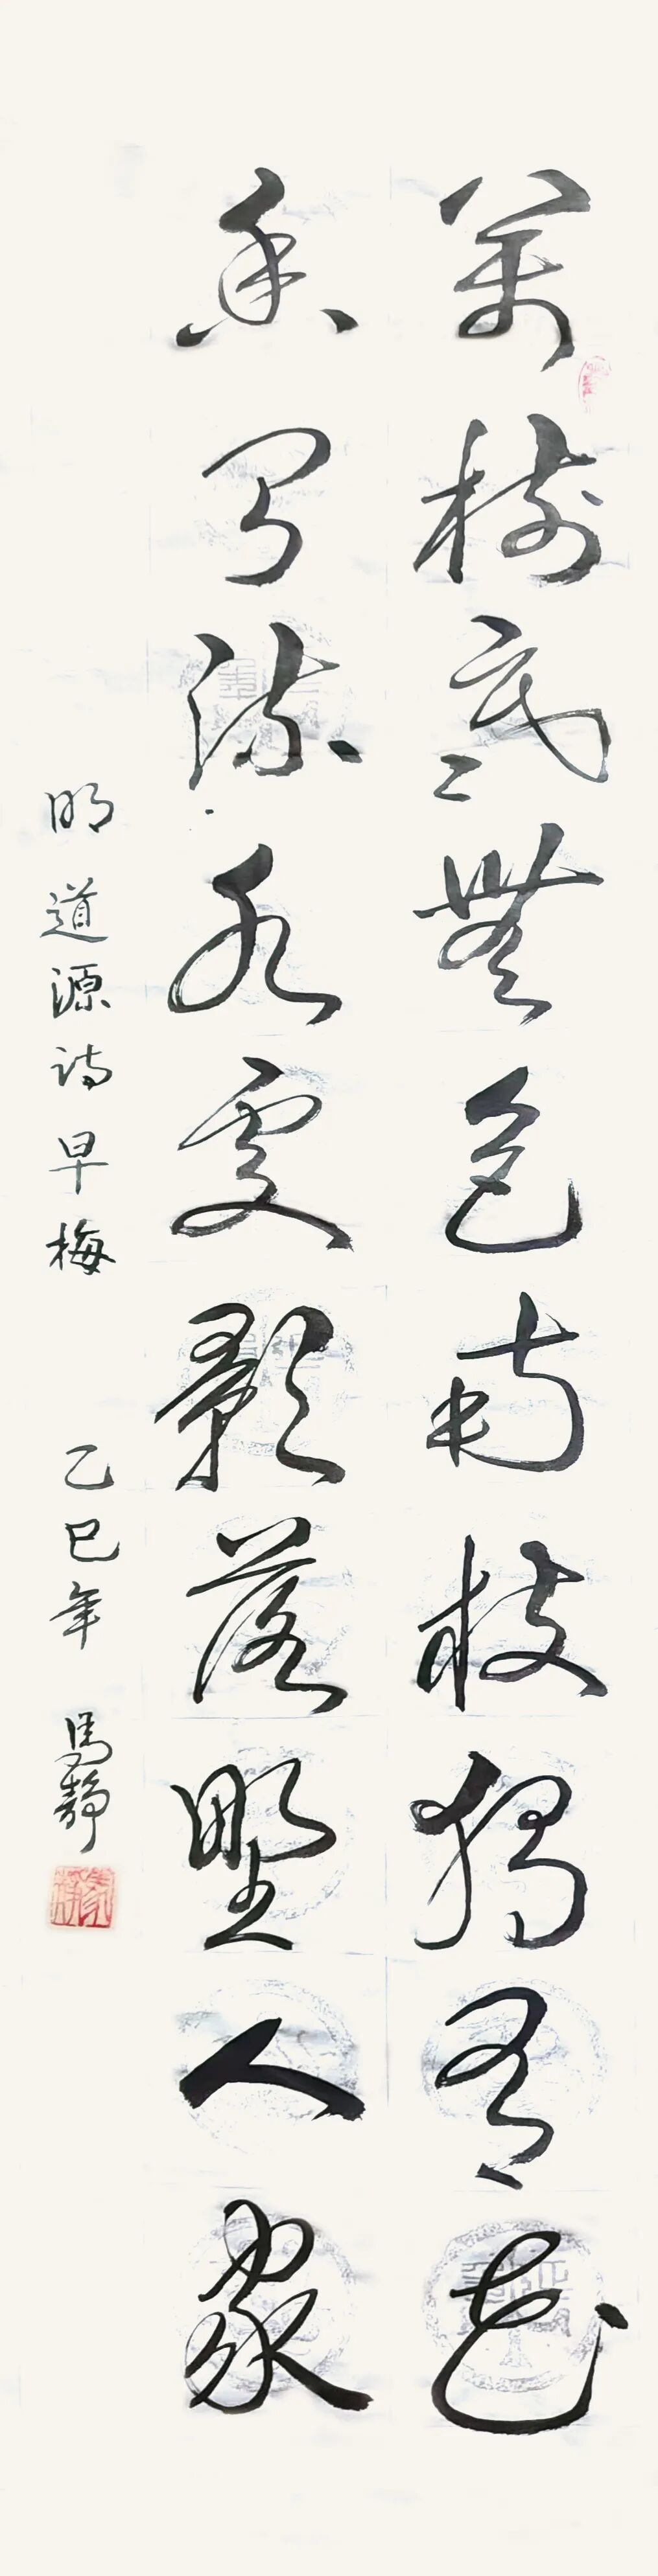 萬樹寒無色南枝獨有花
香聞流水處影落野人家
明道源诗早梅 乙巳年 馬靜